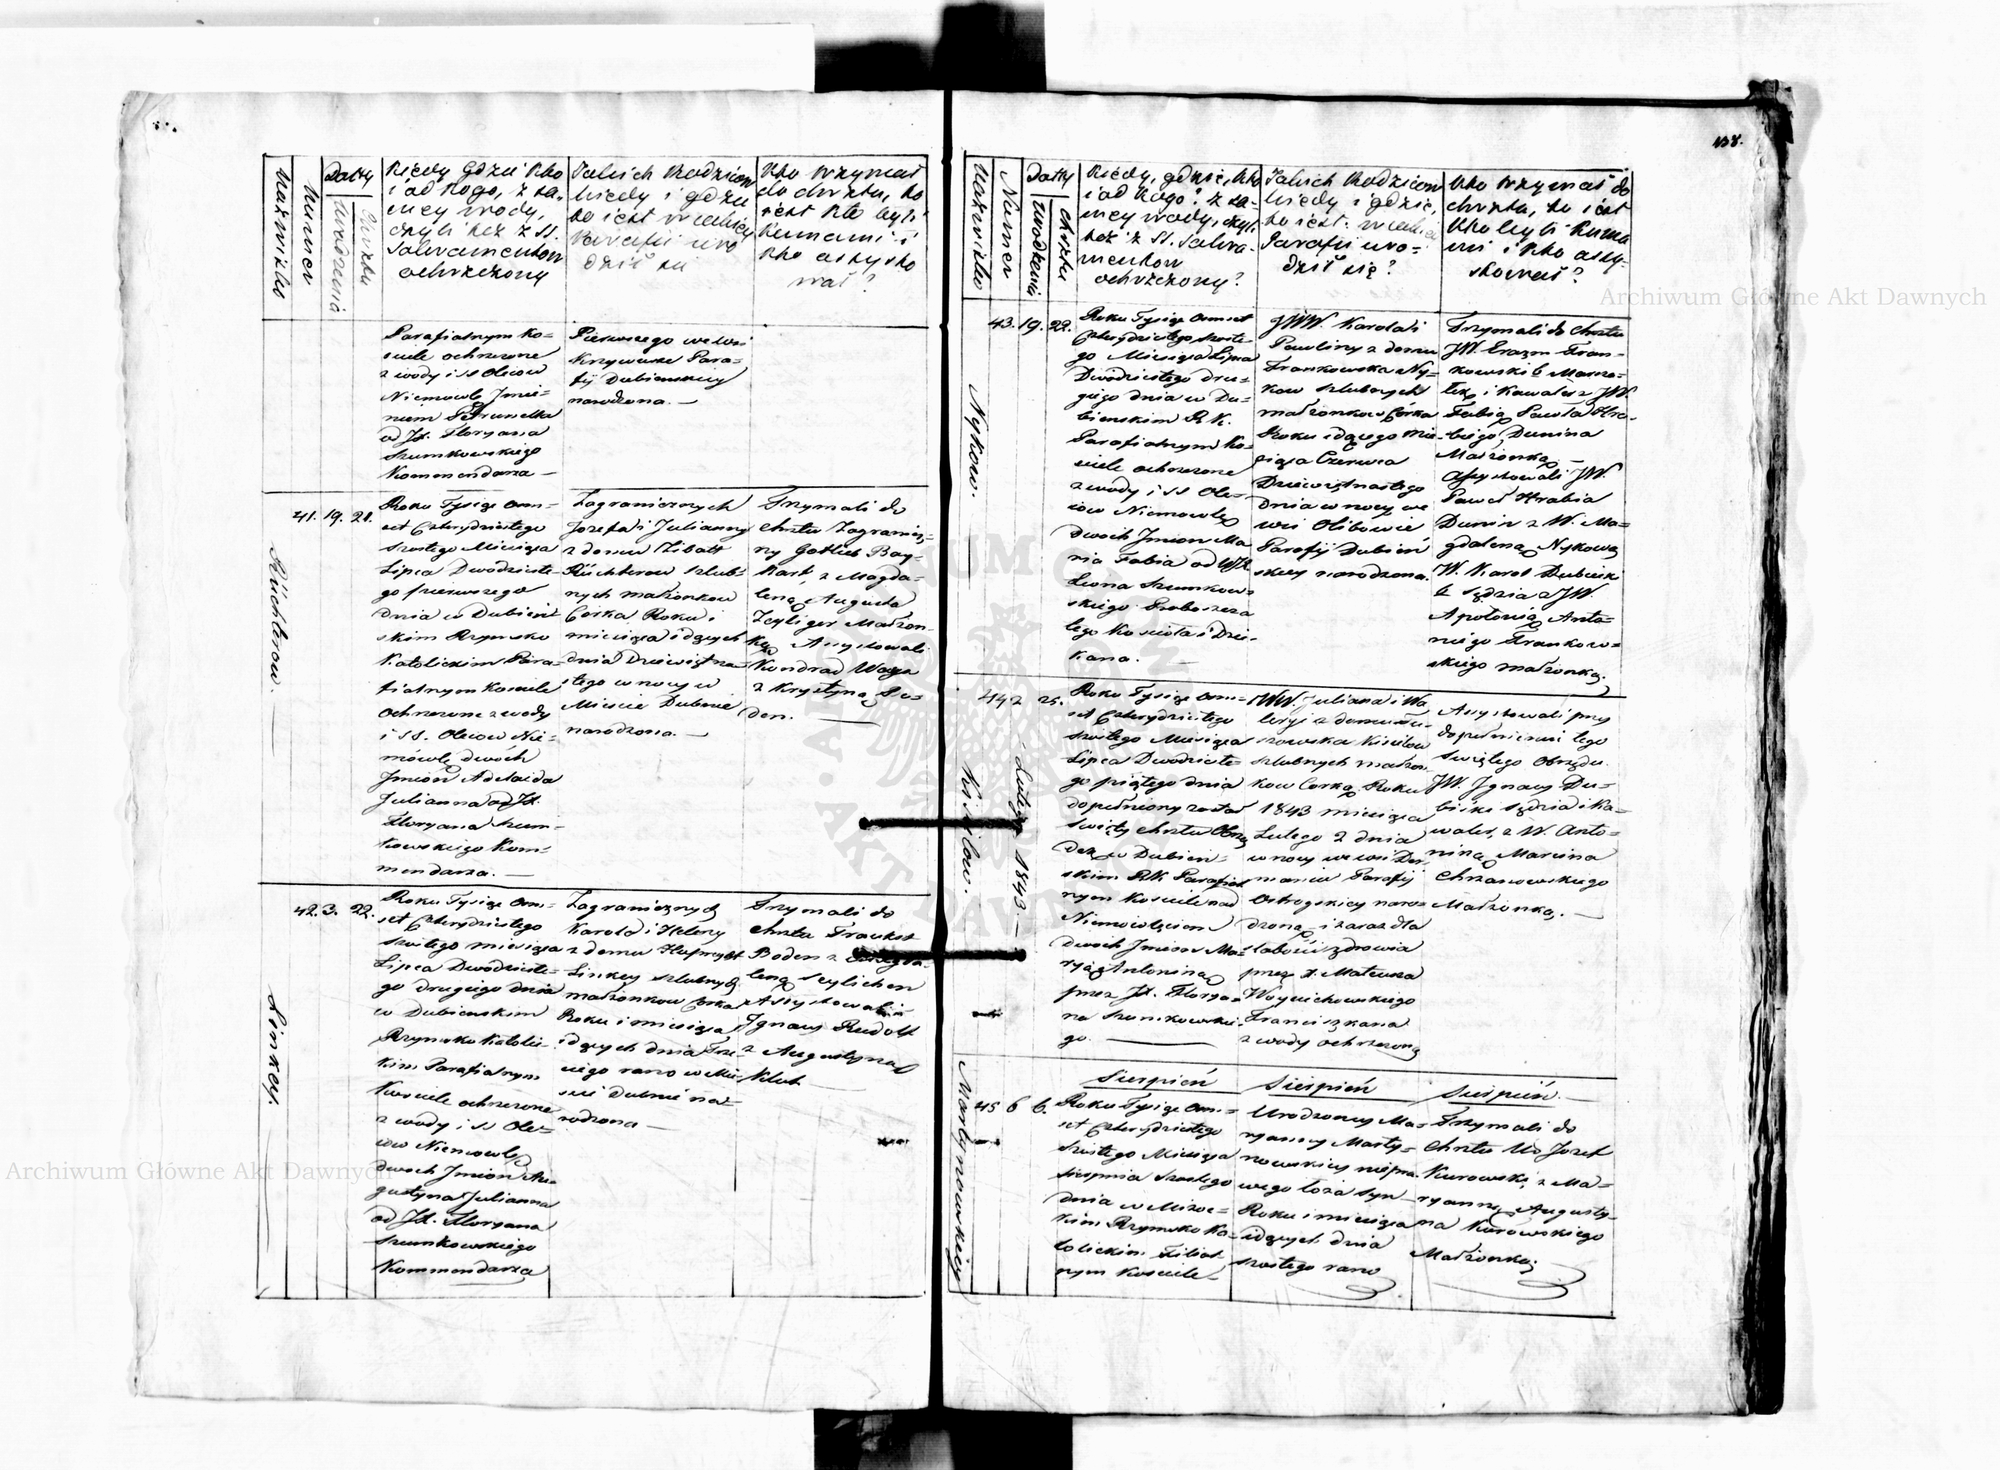 138.
Nazwisko
Numer
Datty
Urodzenia
Chrztu
Kiedy Gdzie Kto
i od Kogo, z sa-
mey wody,
czyli też z SS.
Sakramentów
ochrzczony
Jakich Rodziców
kiedy i gdzie
to jest w jakiey
Parafii uro
dził się
Kto trzymał
do chrztu, to
jest kto byli
Kumami i
kto assysto
wał?
Parafialnym Ko-
ściele ochrzczone
z wody i SS Olejow
Niemowlę Jmie-
niem Petrunella
od JX. Floryana
Szumkowskiego
Kommendarza —
Pierwszego we wsi
Para-
fij Dubienskiey
narodzona. —
41. 19. 21.
Küchlerow.
Roku Tysiąc Ośm-
set Czterydziestego
szostego Miesiąca
Lipca Dwódzieste-
go pierwszego
dnia w Dubień-
skim Rzymsko
Katolickim Para-
fialnym Kościele
Ochrzczone z wody
i SS. Olejow Nie-
mówlę dwóch
Jmión Adelaida
Julianna od JX.
Floryana Szum-
kowskiego Kom-
mendarza. —
Zagranicznych
Jozefa i Julianny
z domu Zibalt
Küchlerow szlub-
nych małżonkow
Corka Roku i
miesiąca idących
dnia Dziewiętna-
stego w nocy w
Mieście Dubnie
narodzona. —
Trzymali do
chrztu Zagranicz-
ny Gotlieb Bay-
Bart, z Magda-
leną Augusta
Zeyliger Małżon-
ką Assystowali
Kondrad Waga
z Krystyną Bo-
den. —
42. 3. 22.
Linkey.
Roku Tysiąc Ośm-
set Czterydziestego
szostego miesiąca
Lipca Dwódzieste-
go drugiego dnia
w Dubienskim
Rzymsko Katolic-
kim Parafialnym
Kościele ochrzczone
z wody i SS Ole-
jow Niemowlę
dwoch Jmion Au-
gustyna Julianna
od JX. Floryana
Szumkowskiego
Kommendarza
Zagranicznych
Karola i Heleny
z domu
Linkey szlubnych
małżonkow Corka
Roku i miesiąca
idących dnia Trze-
ciego rano w Mie-
scie Dubnie na-
rodzona —
Trzymali do
chrztu Traukot
Boden z Magda-
leną Zeylichen
Assystowali
Ignacy Rudolf
z Augustyną
Klub —
Nazwisko
Numer
Datty
Urodzenia
Chrztu
Kiedy, gdzie, kto
i od Kogo? z sa-
mey wody, czyli
też z SS. Sakra-
mentow
ochrzczony?
Jakich Rodziców
kiedy i gdzie,
to jest w jakiey
Parafii uro-
dził się?
Kto trzymał do
chrztu, to jest
kto byli Kuma
mi i kto assy-
stował?
43. 19. 22.
Nykow.
Roku Tysiąc Osmset
Czterydziestego szoste-
go Miesiąca Lipca
Dwódziestego dru-
giego dnia w Du-
bienskim R. K.
Parafialnym Ko-
ściele ochrzczone
z wody i SS Ole-
jow Niemowlę
dwoch Jmion Ma-
ria Fabia od WJX
Leona Szumkow-
skiego Proboszcza
tego Kościoła i Dzie-
kana. —
JWW. Karola i
Pauliny z domu
Frankowska Ny-
kow szlubnych
małżonkow Córka
Roku idącego Mie-
siąca Czerwca
Dziewiętnastego
dnia w nocy we
wsi Olibowie
Parafij Dubień-
skiey narodzona.
Trzymali do chrztu
JW. Erazm Fran-
kowski b. Marsza-
łek, i Kawaler z JW.
Fabią Pawła Hra-
biego Dunina
Małżonką
Assystowali JW.
Paweł Hrabia
Dunin z W. Ma-
gdaleną Nykową
W. Karol Dubicki
b. Sędzia z JW.
Apolonią Anto-
niego Frankow-
skiego małżonką.
44 2 25.
Lutego 1843. —
Kisielow.
Roku Tysiąc Ośm-
set Czterydziestego
szostego Miesiąca
Lipca Dwódzieste-
go piątego dnia
dopełniony został
Swięty chrztu Obrzą-
dek w Dubien-
skim RK Parafial-
nym Kościele nad
Niemowlęciem
dwoch Jmion Ma-
ryą Antoniną
przez JX. Florya-
na Szumkowskie-
go. —
WW. Juliana i Wa
leryi z domu
Kisielow
szlubnych małżon-
kow Corką Roku
1843 miesiąca
Lutego 2 dnia
w nocy we wsi Der-
maniu Parafij
Ostrogskiey naro-
dzoną i zaraz dla
słabości zdrowia
przez X. Mateusza
Woyciechowskiego
Franciszkana
z wody ochrzczoną
Assystowali przy
dopełnieniu tego
Swiętego Obrzędu
JW. Jgnacy Du-
bicki Sędzia i Ka-
waler, z W. Anto-
niną Marcina
Chrzanowskiego
Małżonką. —
Sierpień
Sierpień
Sierpień. —
45 6 6.
Martynowskiey
Roku Tysiąc Ośm-
set Czterydziestego
Szóstego Miesiąca
Sierpnia Szostego
dnia w Mizoc-
kim Rzymsko Ka-
tolickim Filial-
nym Kościele
Urodzoney Ma-
ryanny Marty-
nowskiey niepra-
wego łoża Syn
Roku i miesiąca
idących dnia
szostego rano
Trzymali do
Chrztu Ur Jozef
Kurowski z Ma-
ryanną Augusty-
na Kurowskiego
Małżonką.
Archiwum Główne Akt Dawnych
Archiwum Główne Akt Dawnych